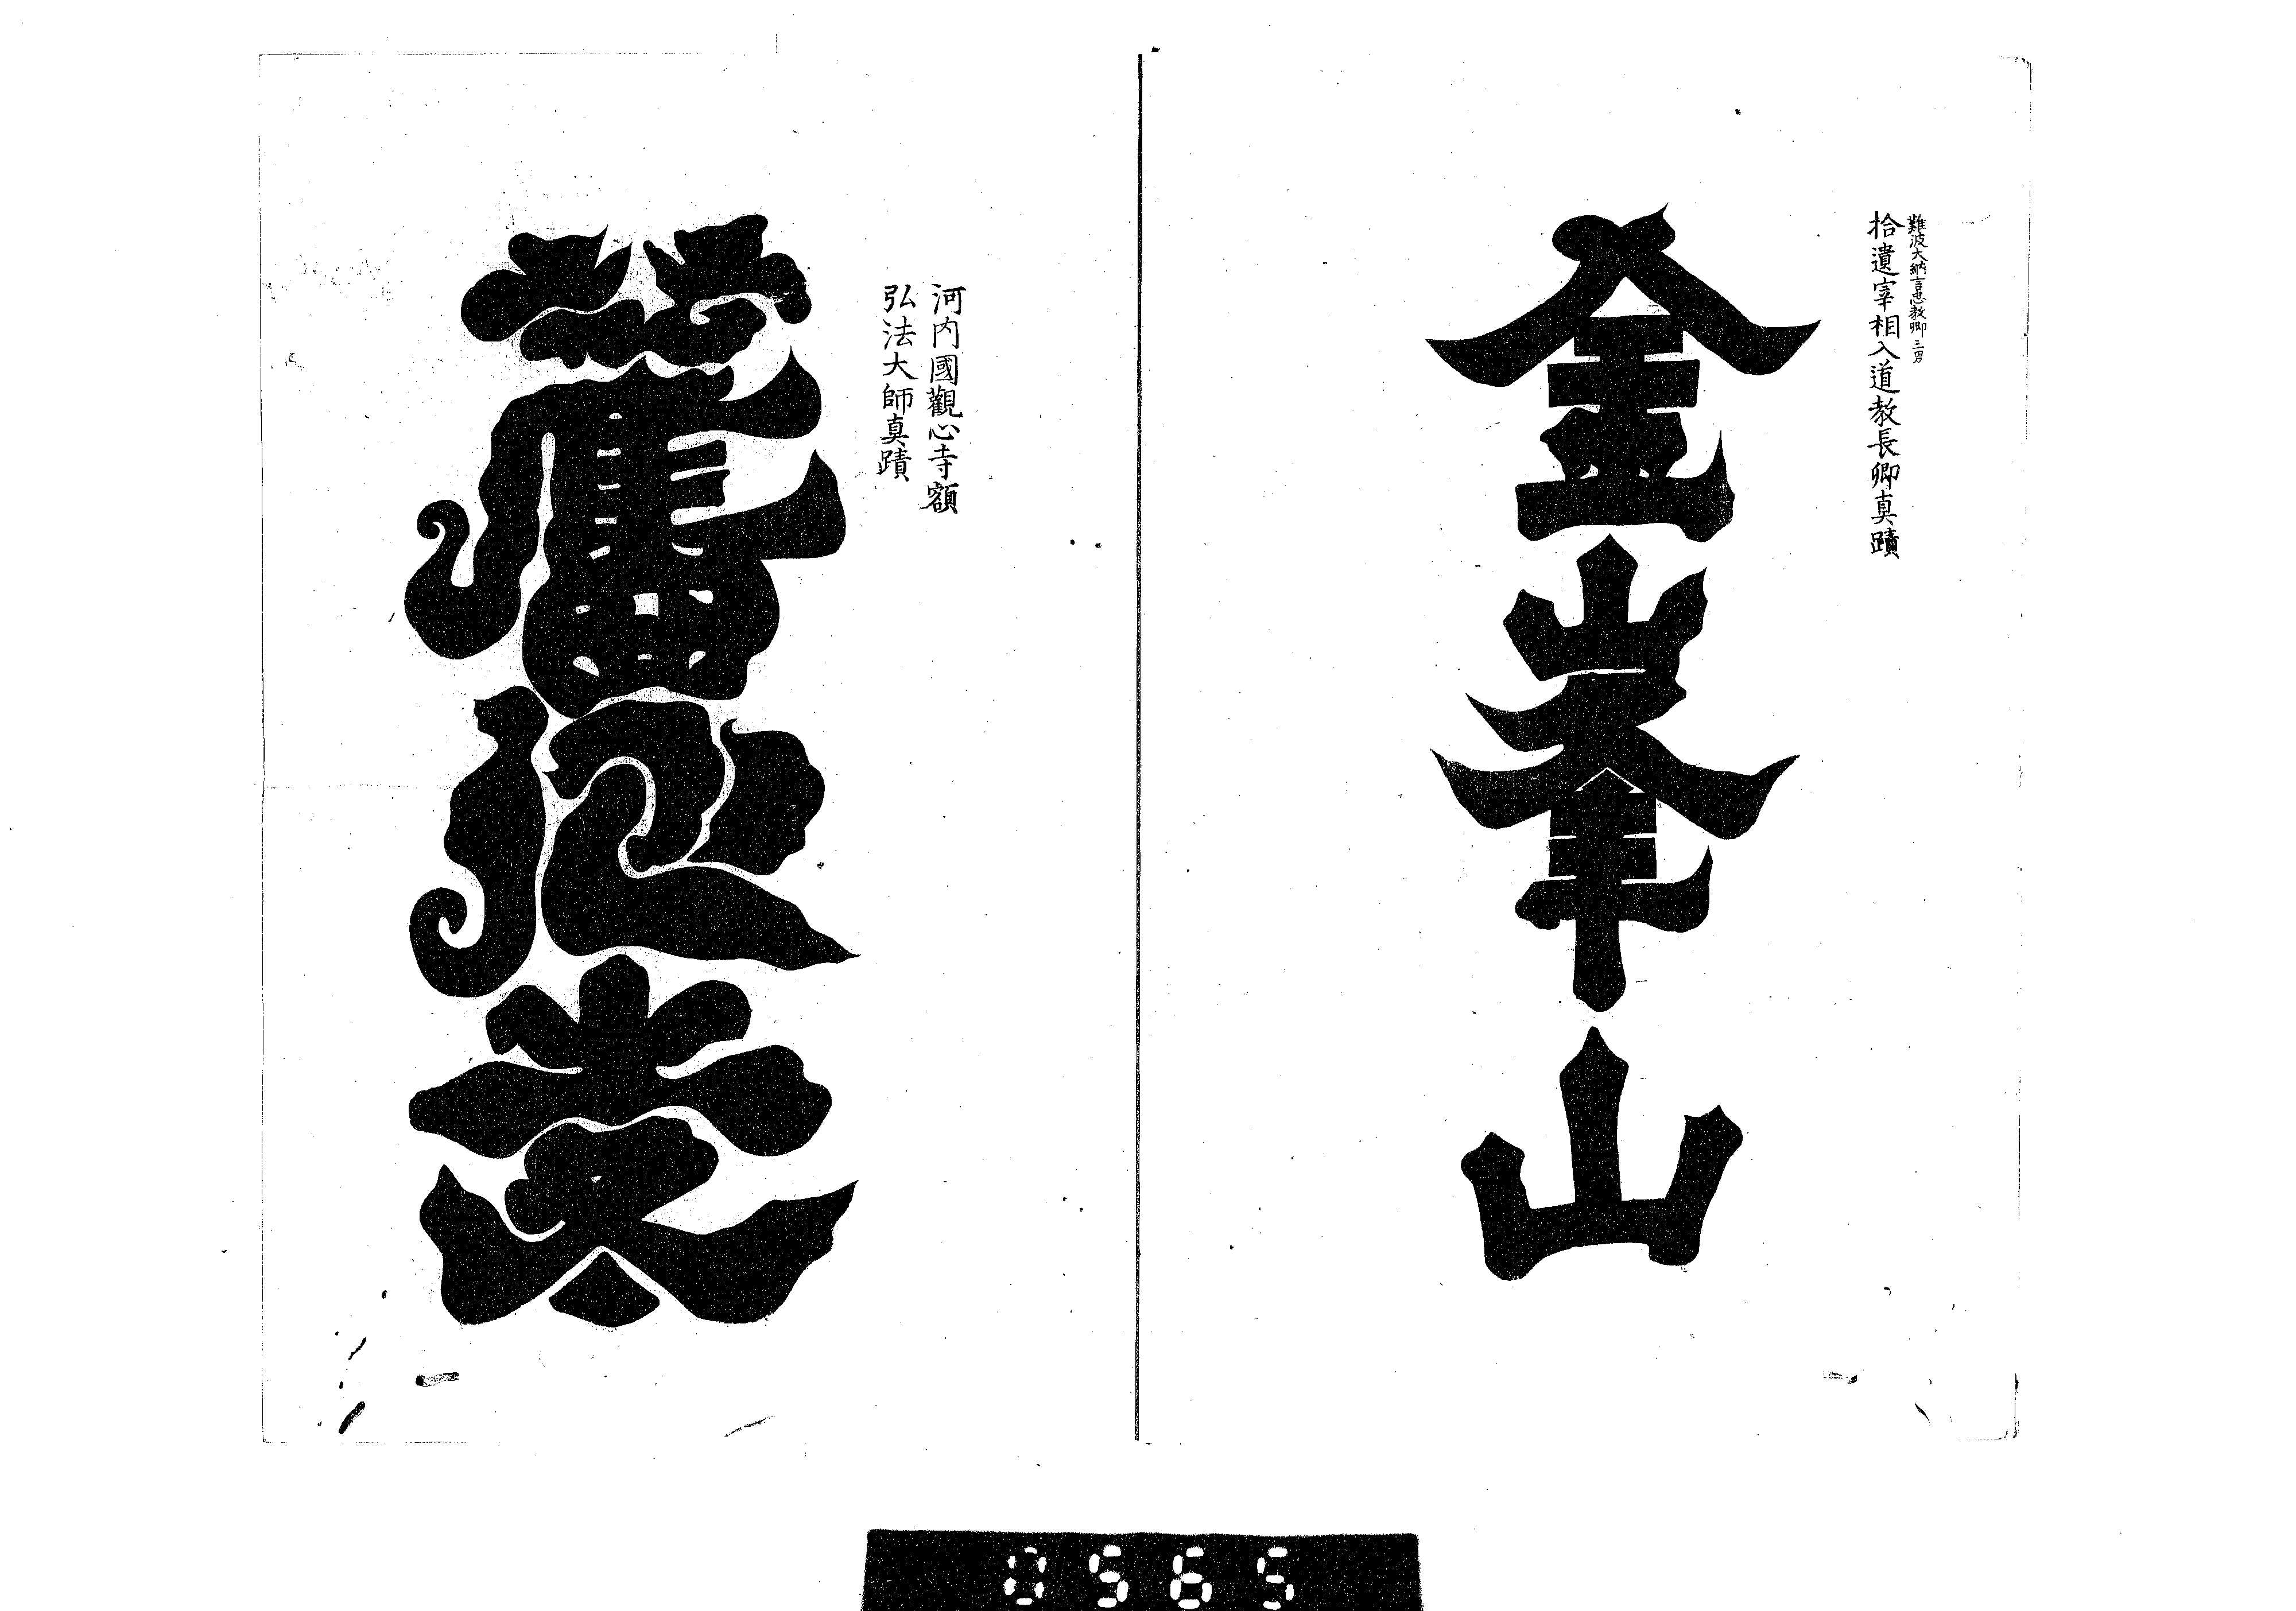 難波大納言忠教卿三男
拾遺宰相入道教長卿真蹟
金峯山
河内國觀心寺額
弘法大師真蹟
0565